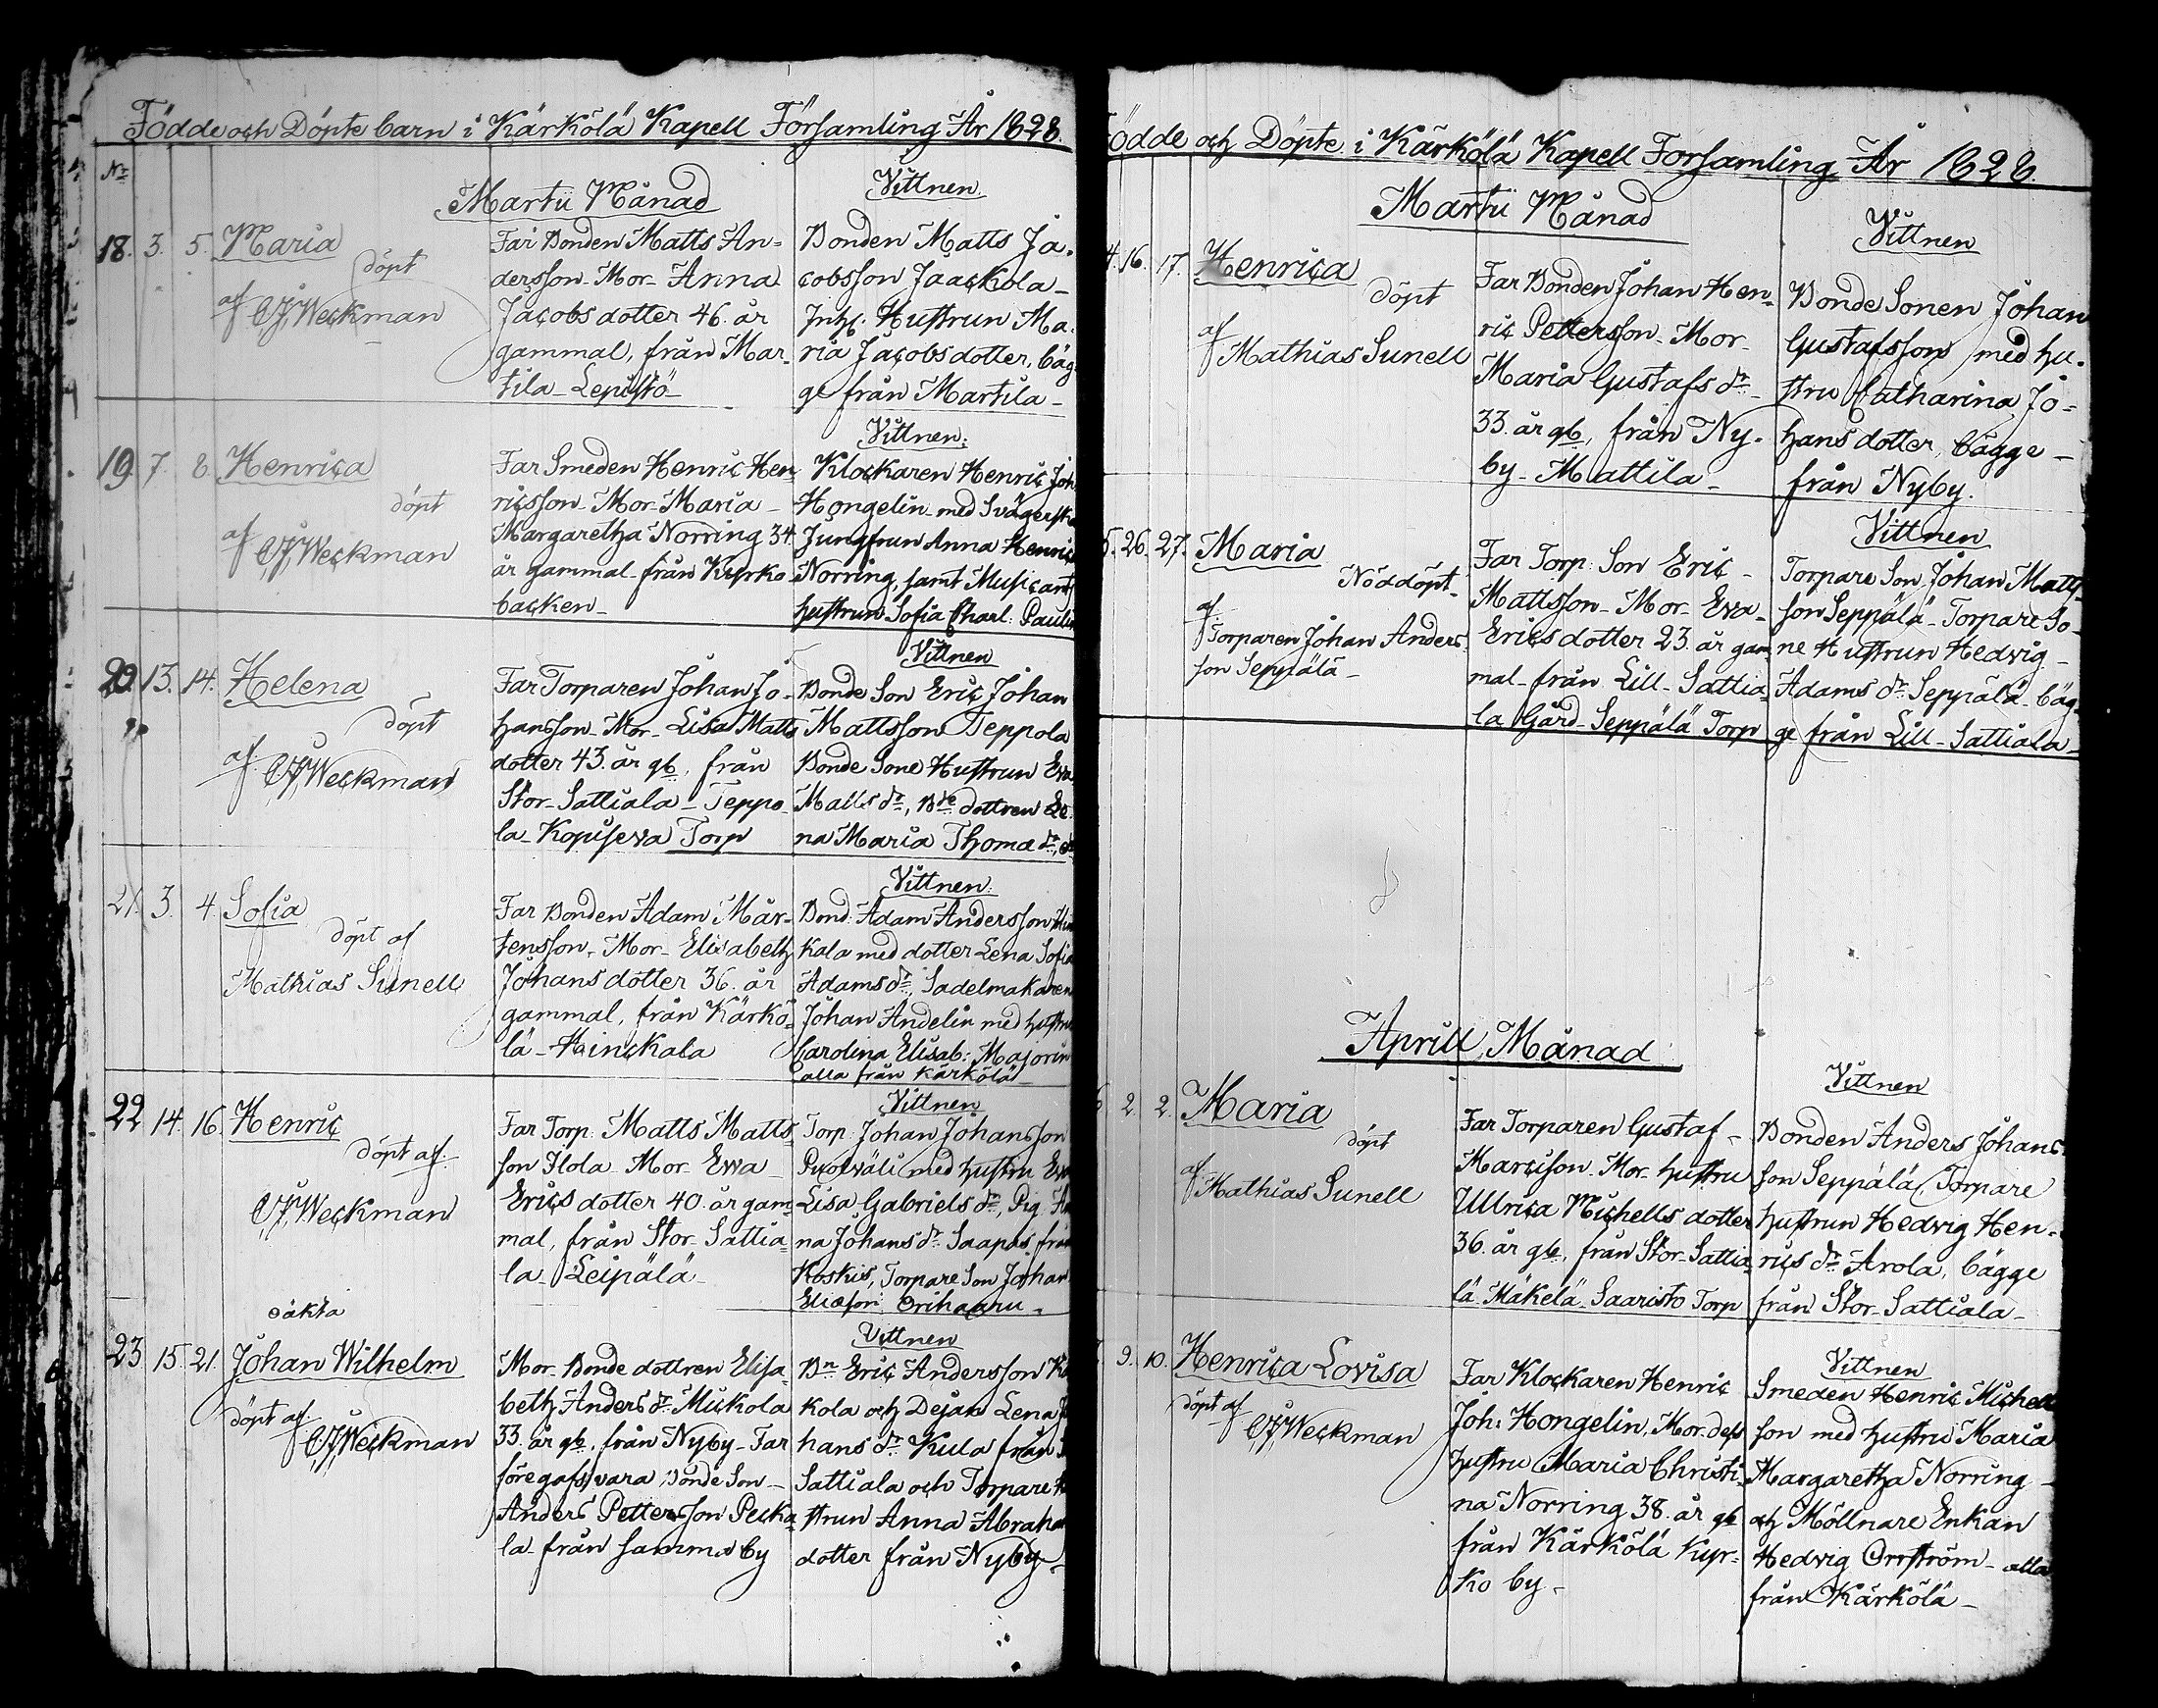 Födde och Döpte barn i Kärkölä Kapell Församling År 1828.
No
Martii Månad
Vittnen
18. 3. 5. Maria
döpt
af CJ Weckman
Far Bonden Matts An-
dersson Mor Anna
Jacobs dotter 46. år
gammal, från Mar-
tila Lepistö
Bonden Matts Ja-
cobsson Jaackola
Hustrun Ma-
ria Jacobs dotter, bäg-
ge från Martila
19. 7. 8. Henrica
döpt
af CJ Weckman
Far Smeden Henric Hen-
ricsson Mor Maria
Margaretha Norring 34.
år gammal från Kyrko
backen
Vittnen:
Klockaren Henric Joh
Hongelin med Svägerska
Jungfrun Anna Henric
Norring, samt Musicant
hustrun Sofia Charl: Paulin
20. 13. 14. Helena
döpt
af CJ Weckman
Far Torparen Johan Jo-
hansson Mor Lisa Matts
dotter 43. år gb, från
Stor Sattiala Teppo
la Kopiseva Torp
Vittnen
Bonde Son Eric Johan
Mattsson Teppola
Bonde Sone Hustrun Eva
Matts dr, Bde dottren Le
na Maria Thomæ dr,
21. 3. 4. Sofia
döpt af
Mathias Sunell
Far Bonden Adam Mår-
tensson, Mor Elisabeth
Johans dotter 36. år
gammal, från Kärkö-
lä Hinckala
Vittnen:
Bond: Adam Andersson Hin
kala med dotter Lena Sofia
Adams dr, Sadelmakaren
Johan Andelin med hustru
Carolina Elisab: Majorin
alla från Kärkölä
22 14. 16. Henric
döpt af
CJ Weckman
Far Torp: Matts Matts
son Ilola Mor Ewa
Erics dotter 40. år gam-
mal, från Stor Sattia-
la Leipälä
Vittnen
Torp: Johan Johansson
Puolväli med hustru Ewa
Lisa Gabriels dr, Pig. An
na Johans dr Saapas från
Koskis, Torpare Son Johan
Eliæson Orihaaru
oäkta
23 15. 21. Johan Wilhelm
döpt af
CJ Weckman
Mor Bonde dottren Elisa-
beth Anders dr Mickola
33. år gb, från Nyby Far
föregafs vara Bonde Son
Anders Petterson Pecka
la från samma by
Vittnen
Bn Eric Andersson
kola och Dejan Lena Jo
hans dr Kula från
Sattiala och Torpare Hu
strun Anna Abraha
dotter från Nyby
Födde och Döpte i Kärkölä Kapell Forsamling År 1828.
Martii Månad
Vittnen
4. 16. 17. Henrica
döpt
af Mathias Sunell
Far Bonden Johan Hen-
ric Pettersson Mor
Maria Gustafs dr
33. år gb, från Ny-
by Mattila
Bonde Sonen Johan
Gustafsson med hu-
stru Catharina Jo-
hans dotter, bägge
från Nyby.
5. 26. 27. Maria
Nöddöpt
af
Torparen Johan Anders
son Seppälä
Far Torp: Son Eric
Mattsson Mor Ewa
Erics dotter 23. år gam
mal från Lill Sattia-
la Gård Seppälä Torp
Vittnen
Torpare Son Johan Matts
son Seppälä Torpare So-
ne Hustrun Hedvig
Adams dr Seppälä bäg-
ge från Lill Sattiala
Aprill Månad
6 2. 2. Maria
döpt
af Mathias Sunell
Far Torparen Gustaf
Marcison Mor hustru
Ullrica Michells dotter
36. år gb, från Stor Sattia-
lä Mäkelä Saaristo Torp
Vittnen
Bonden Anders Johans
son Seppälä, Torpare
hustrun Hedvig Hen-
rics dr Arola, bägge
från Stor Sattiala
9. 10. Henrica Lovisa
döpt af
CJ Weckman
Far Klockaren Henric
Joh: Hongelin, Mor dess
hustru Maria Christi-
na Norring 38. år gb
från Kärkölä Kyr-
ko by
Vittnen
Smeden Henric Michell
son med hustru Maria
Margaretha Norring
och Möllnare Enkan
Hedvig Orrström alla
från Kärkölä